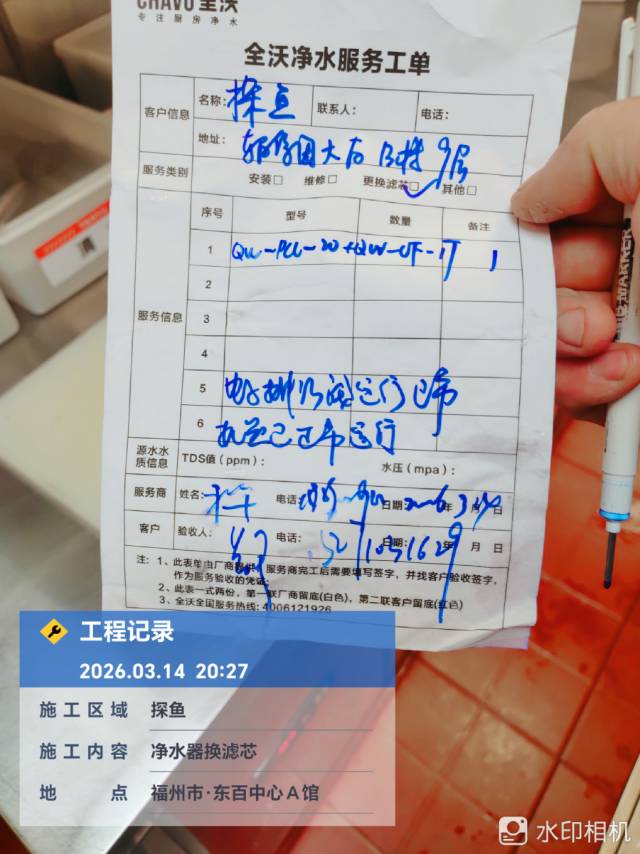 CHAVO 全沃
专注厨房净水
全沃净水服务工单
客户信息 名称：探鱼 联系人： 电话：
地址： B楼9层
服务类别 安装□ 维修□ 更换滤芯□ 其他□
服务信息 序号 型号 数量 备注
1 QW-PCC-20+QW-UF-1T 1
2
3
4
5
6 机器已正常运行
源水水质信息 TDS值（ppm）： 水压（mpa）：
服务商 姓名： 电话： 日期：2026年3月14日
客户 验收人： 电话： 日期： 年 月 日
注：1、此表单由厂商提供，服务商完工后需要填写签字，并找客户验收签字，
作为服务验收的凭证；
2、此表一式两份，第一联厂商留底(白色)，第二联客户留底(红色)
3、全沃全国服务热线：4006121926
工程记录
2026.03.14 20:27
施工区域 探鱼
施工内容 净水器换滤芯
地点 福州市·东百中心A馆
水印相机
MARKER